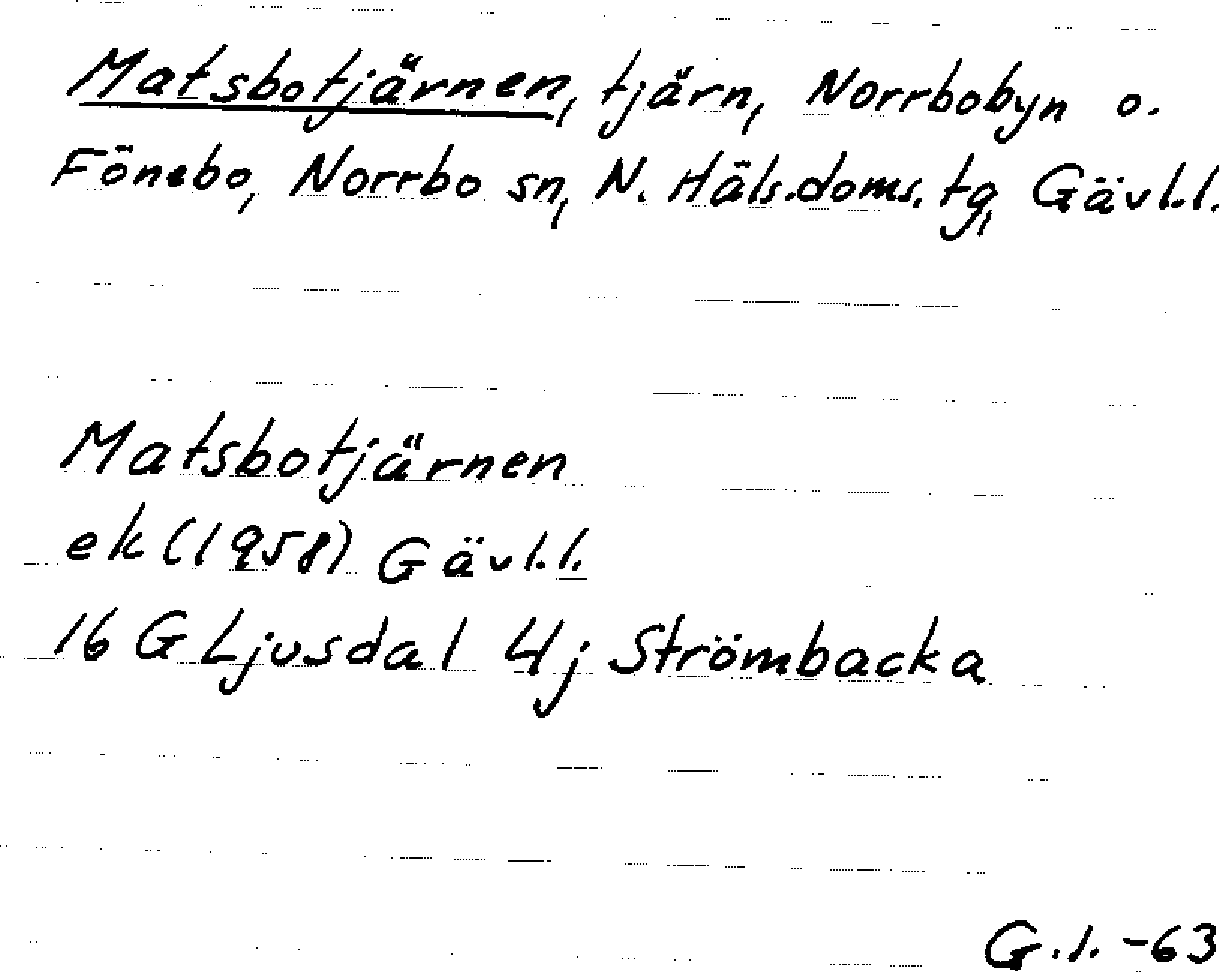 Matsbotjärnen, tjärn, Norrbobyn o.
Fönebo, Norrbo sn, N. Häls.doms.tg, Gävl.l.
Matsbotjärnen
ek (1958) Gävl.l.
16 G Ljusdal 4j Strömbacka
G.l. -63